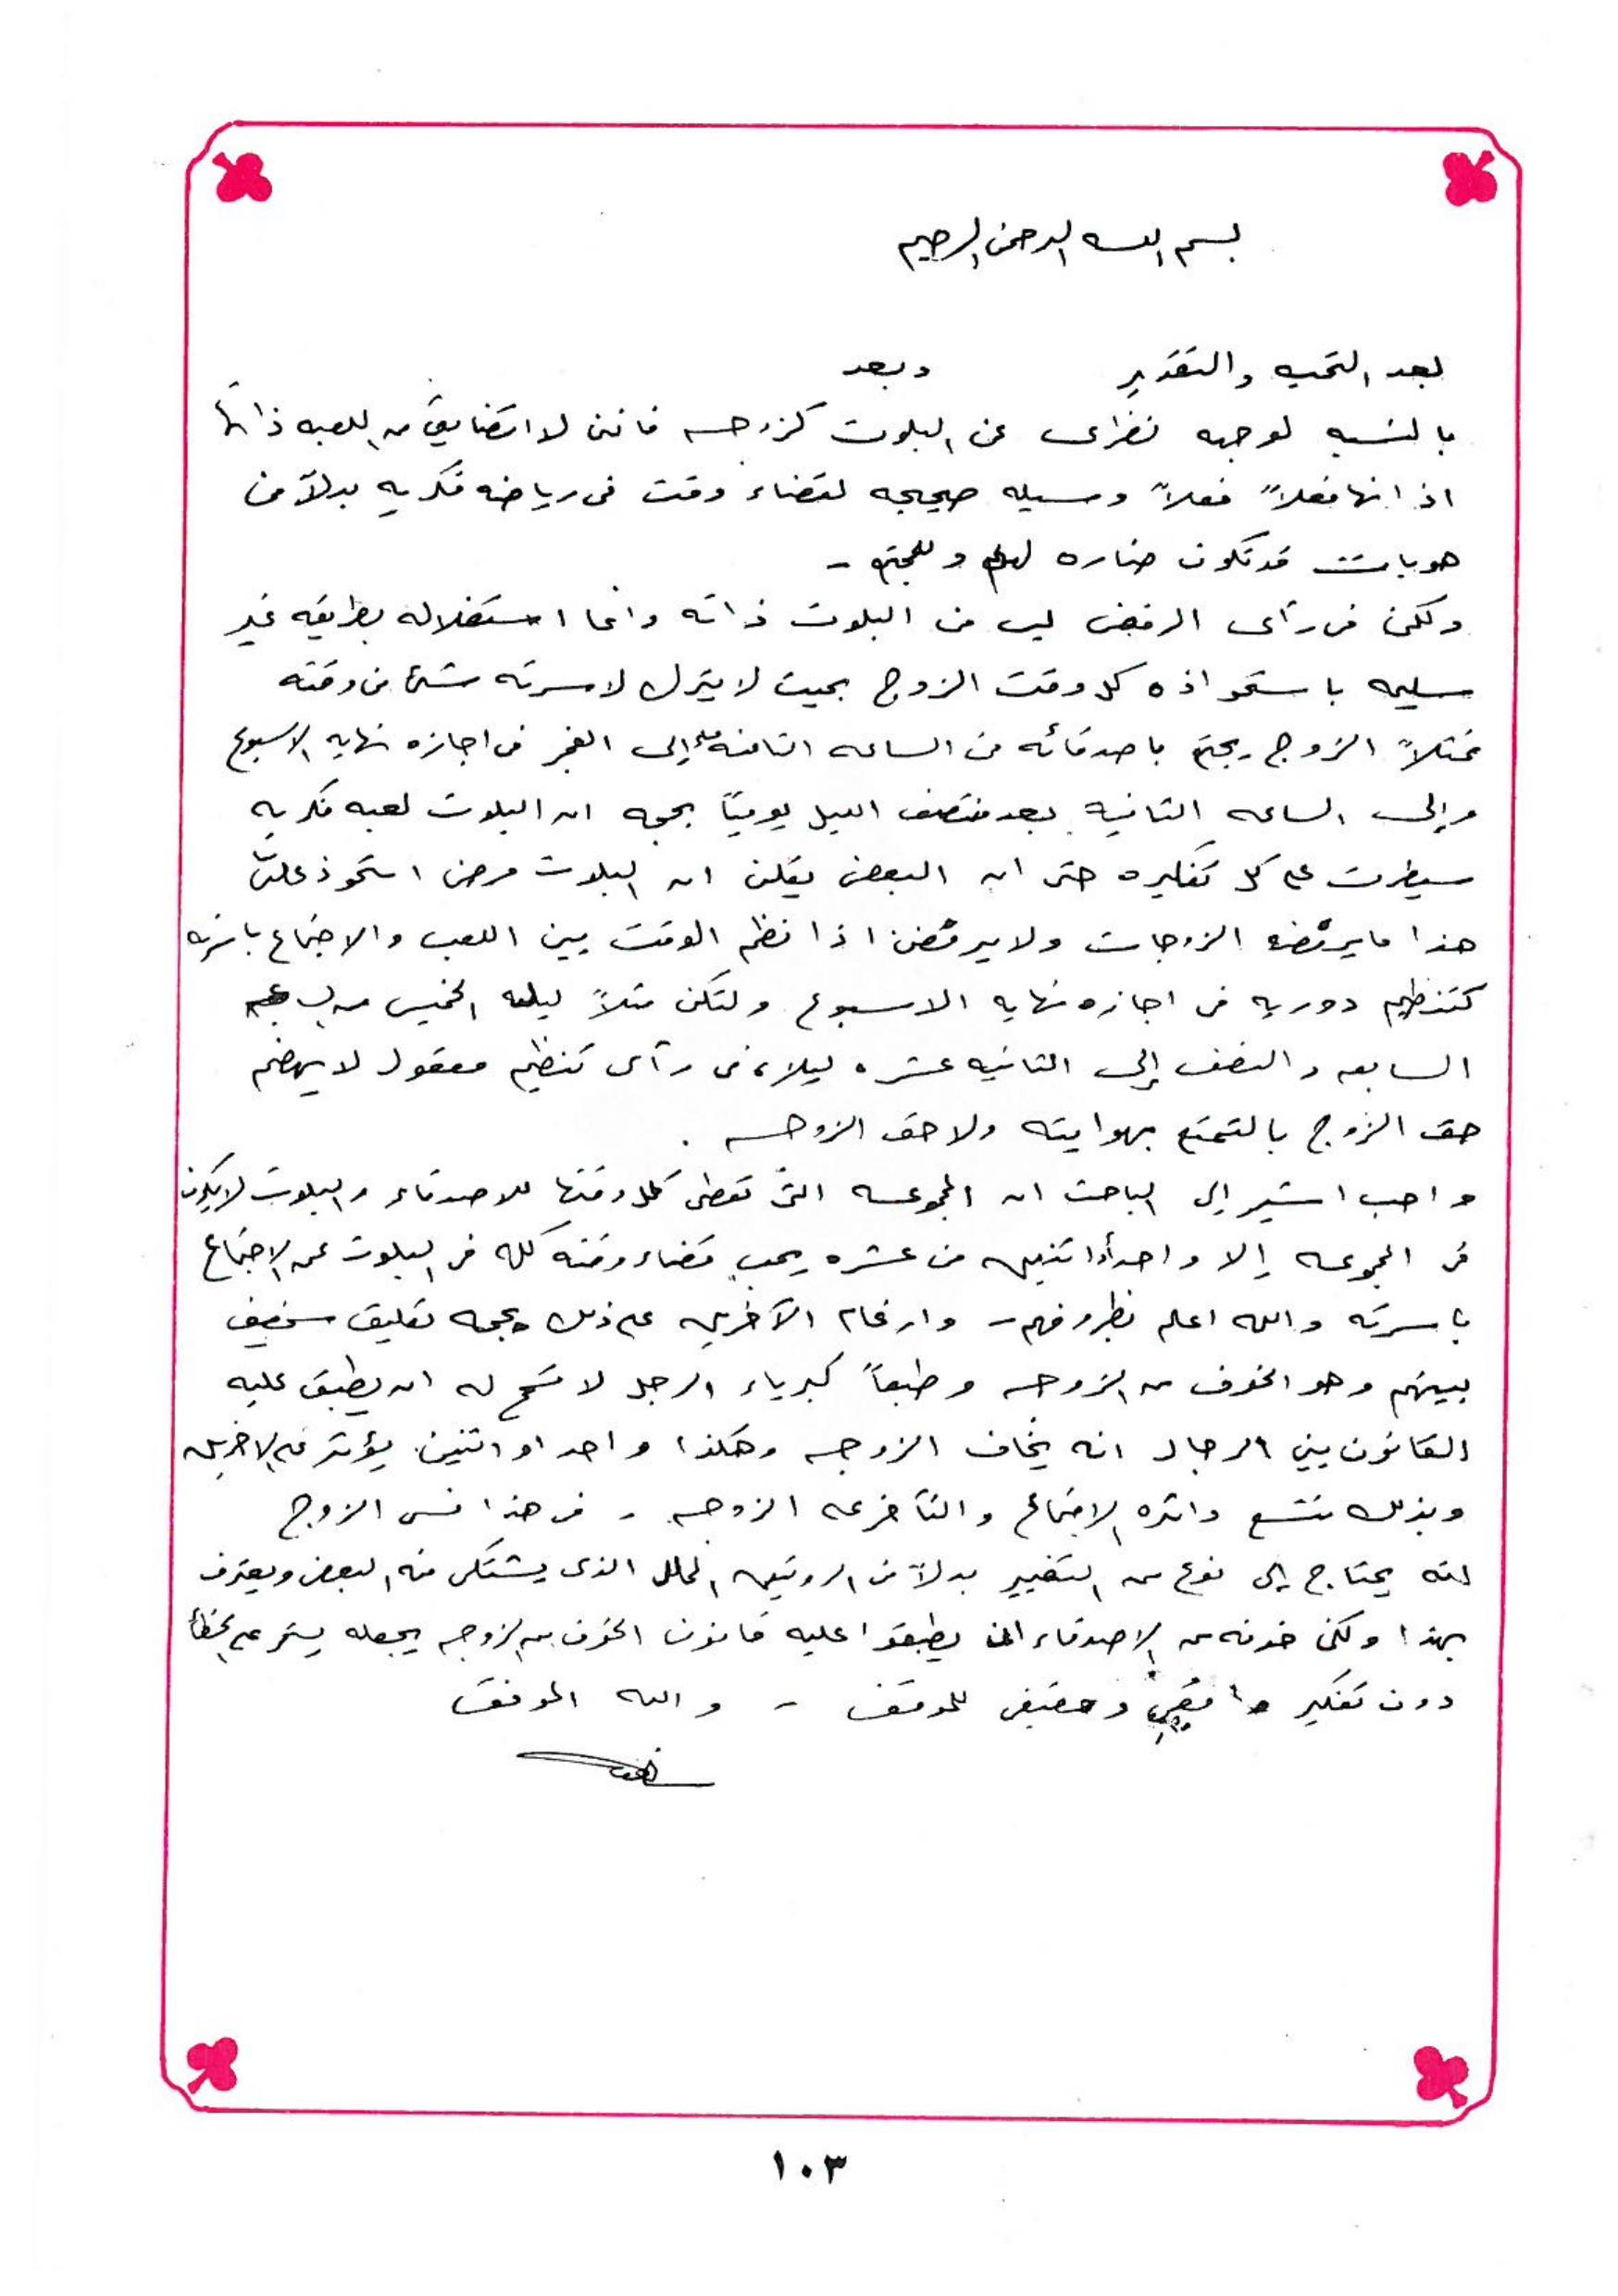 بسم الله الرحمن الرحيم
بعد التحيه والتقدير وبعد
بالنسبه لوجهه نظرى عن البلوت كزوجه فاننى لا اتضايق من اللعبه ذاتها
اذ انها فعلاً فعلاً وسيله صحيحه لقضاء وقت فى رياضه فكريه بدلاً من
هوايات قد تكون ضاره لهم وللمجتمع -
ولكن فى رأى الرفض ليس من البلوت ذاته وانما استغلاله بطريقه غير
سليمه باستحواذه كل وقت الزوج بحيث لا يترك لاسرته شئ من وقته
فمثلاً الزوج يجتمع باصدقائه من الساعه الثامنه إلى الفجر فى اجازه نهايه الاسبوع
وإلى الساعه الثانيه بعد منتصف الليل يومياً بحجه ان البلوت لعبه فكريه
سيطرت على كل تفكيره حتى ان البعض يقلن ان البلوت مرض استحوذ علينا
هذا ما يرفضه الزوجات ولا يرفضن اذا نظم الوقت بين اللعب والاجتماع باسرته
كتنظيم دوريه فى اجازه نهايه الاسبوع ولتكن مثلاً ليله الخميس من
السابعه والنصف إلى الثانيه عشره ليلاً، فى رأى تنظيم معقول لا يهضم
حق الزوج بالتمتع بهوايته ولا حق الزوجه .
واحب اشير إلى الباحث ان المجموعه التى تعطى كل وقتها للاصدقاء والبلوت لا يكون
فى المجموعه إلا واحداً أو اثنين من عشره يحب قضاء وقته كله فى البلوت عن الاجتماع
باسرته والله اعلم بظروفهم - وارغام الآخرين على ذلك بحجه تعليق سخيف
بينهم وهو الخوف من الزوجه وطبعاً كبرياء الرجل لا تسمح له ان يطبق عليه
القانون بين الرجال انه يخاف الزوجه وهكذا واحد او اثنين يؤثر على الاخرين
وبذلك تتسع دائره الاجتماع والتأخر عن الزوجه - فى هذا نسى الزوج
انه يحتاج إلى نوع من التغيير بدلاً من الروتين الممل الذى يشتكى منه البعض ويعترف
بهذا ولكن خوفه من الاصدقاء ان يطبقوا عليه قانون الخوف من الزوجه يجعله يستمر على الخطأ
دون تفكير واقعى وحقيقى للموقف - والله الموفق
١٠٣